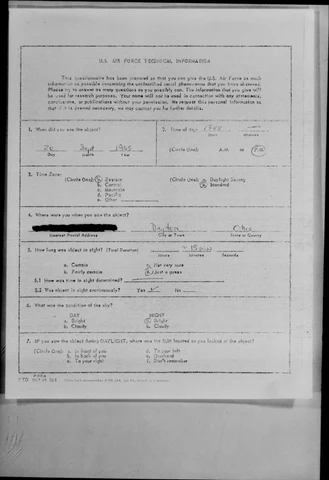 U.S. AIR FORCE TECHNICAL INFORMATION
This questionnaire has been prepared so that you can give the U.S. Air Force as much
information as possible concerning the unidentified aerial phenomenon that you have observed.
Please try to answer as many questions as you possibly can. The information that you give will
be used for research purposes. Your name will not be used in connection with any statements,
conclusions, or publications without your permission. We request this personal information so
that if it is deemed necessary, we may contact you for further details.
1. When did you see the object?
2. Time of day:
Sept 1965
Day Month Year
Hour Minutes
(Circle One): A.M. or P.M.
3. Time Zone:
(Circle One): a. Eastern
b. Central
c. Mountain
d. Pacific
e. Other
(Circle One): a. Daylight Saving
b. Standard
4. Where were you when you saw the object?
Dayton Ohio
Nearest Postal Address City or Town State or County
5. How long was object in sight? (Total Duration)
15
Hours Minutes Seconds
a. Certain
b. Fairly certain
c. Not very sure
d. Just a guess
5.1 How was time in sight determined?
5.2 Was object in sight continuously? Yes No
6. What was the condition of the sky?
DAY
a. Bright
b. Cloudy
NIGHT
a. Bright
b. Cloudy
7. IF you saw the object during DAYLIGHT, where was the SUN located as you looked at the object?
(Circle One): a. In front of you
b. In back of you
c. To your right
d. To your left
e. Overhead
f. Don't remember
FORM
FTD OCT 62 164